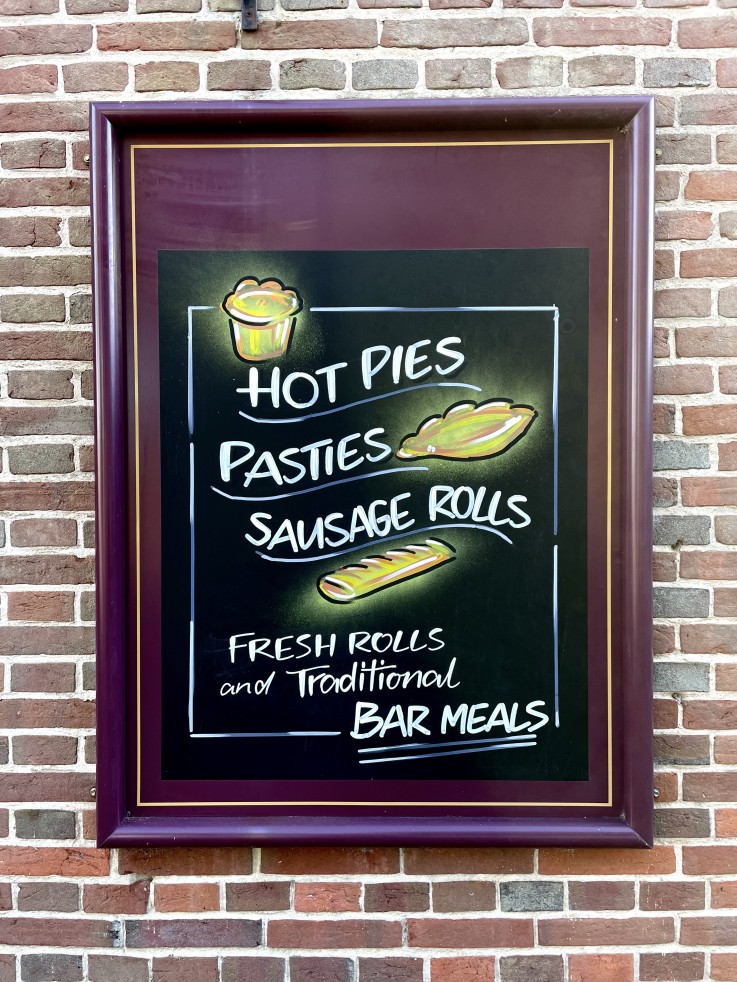 HOT PIES
PASTIES
SAUSAGE ROLLS
FRESH ROLLS
and Traditional
BAR MEALS